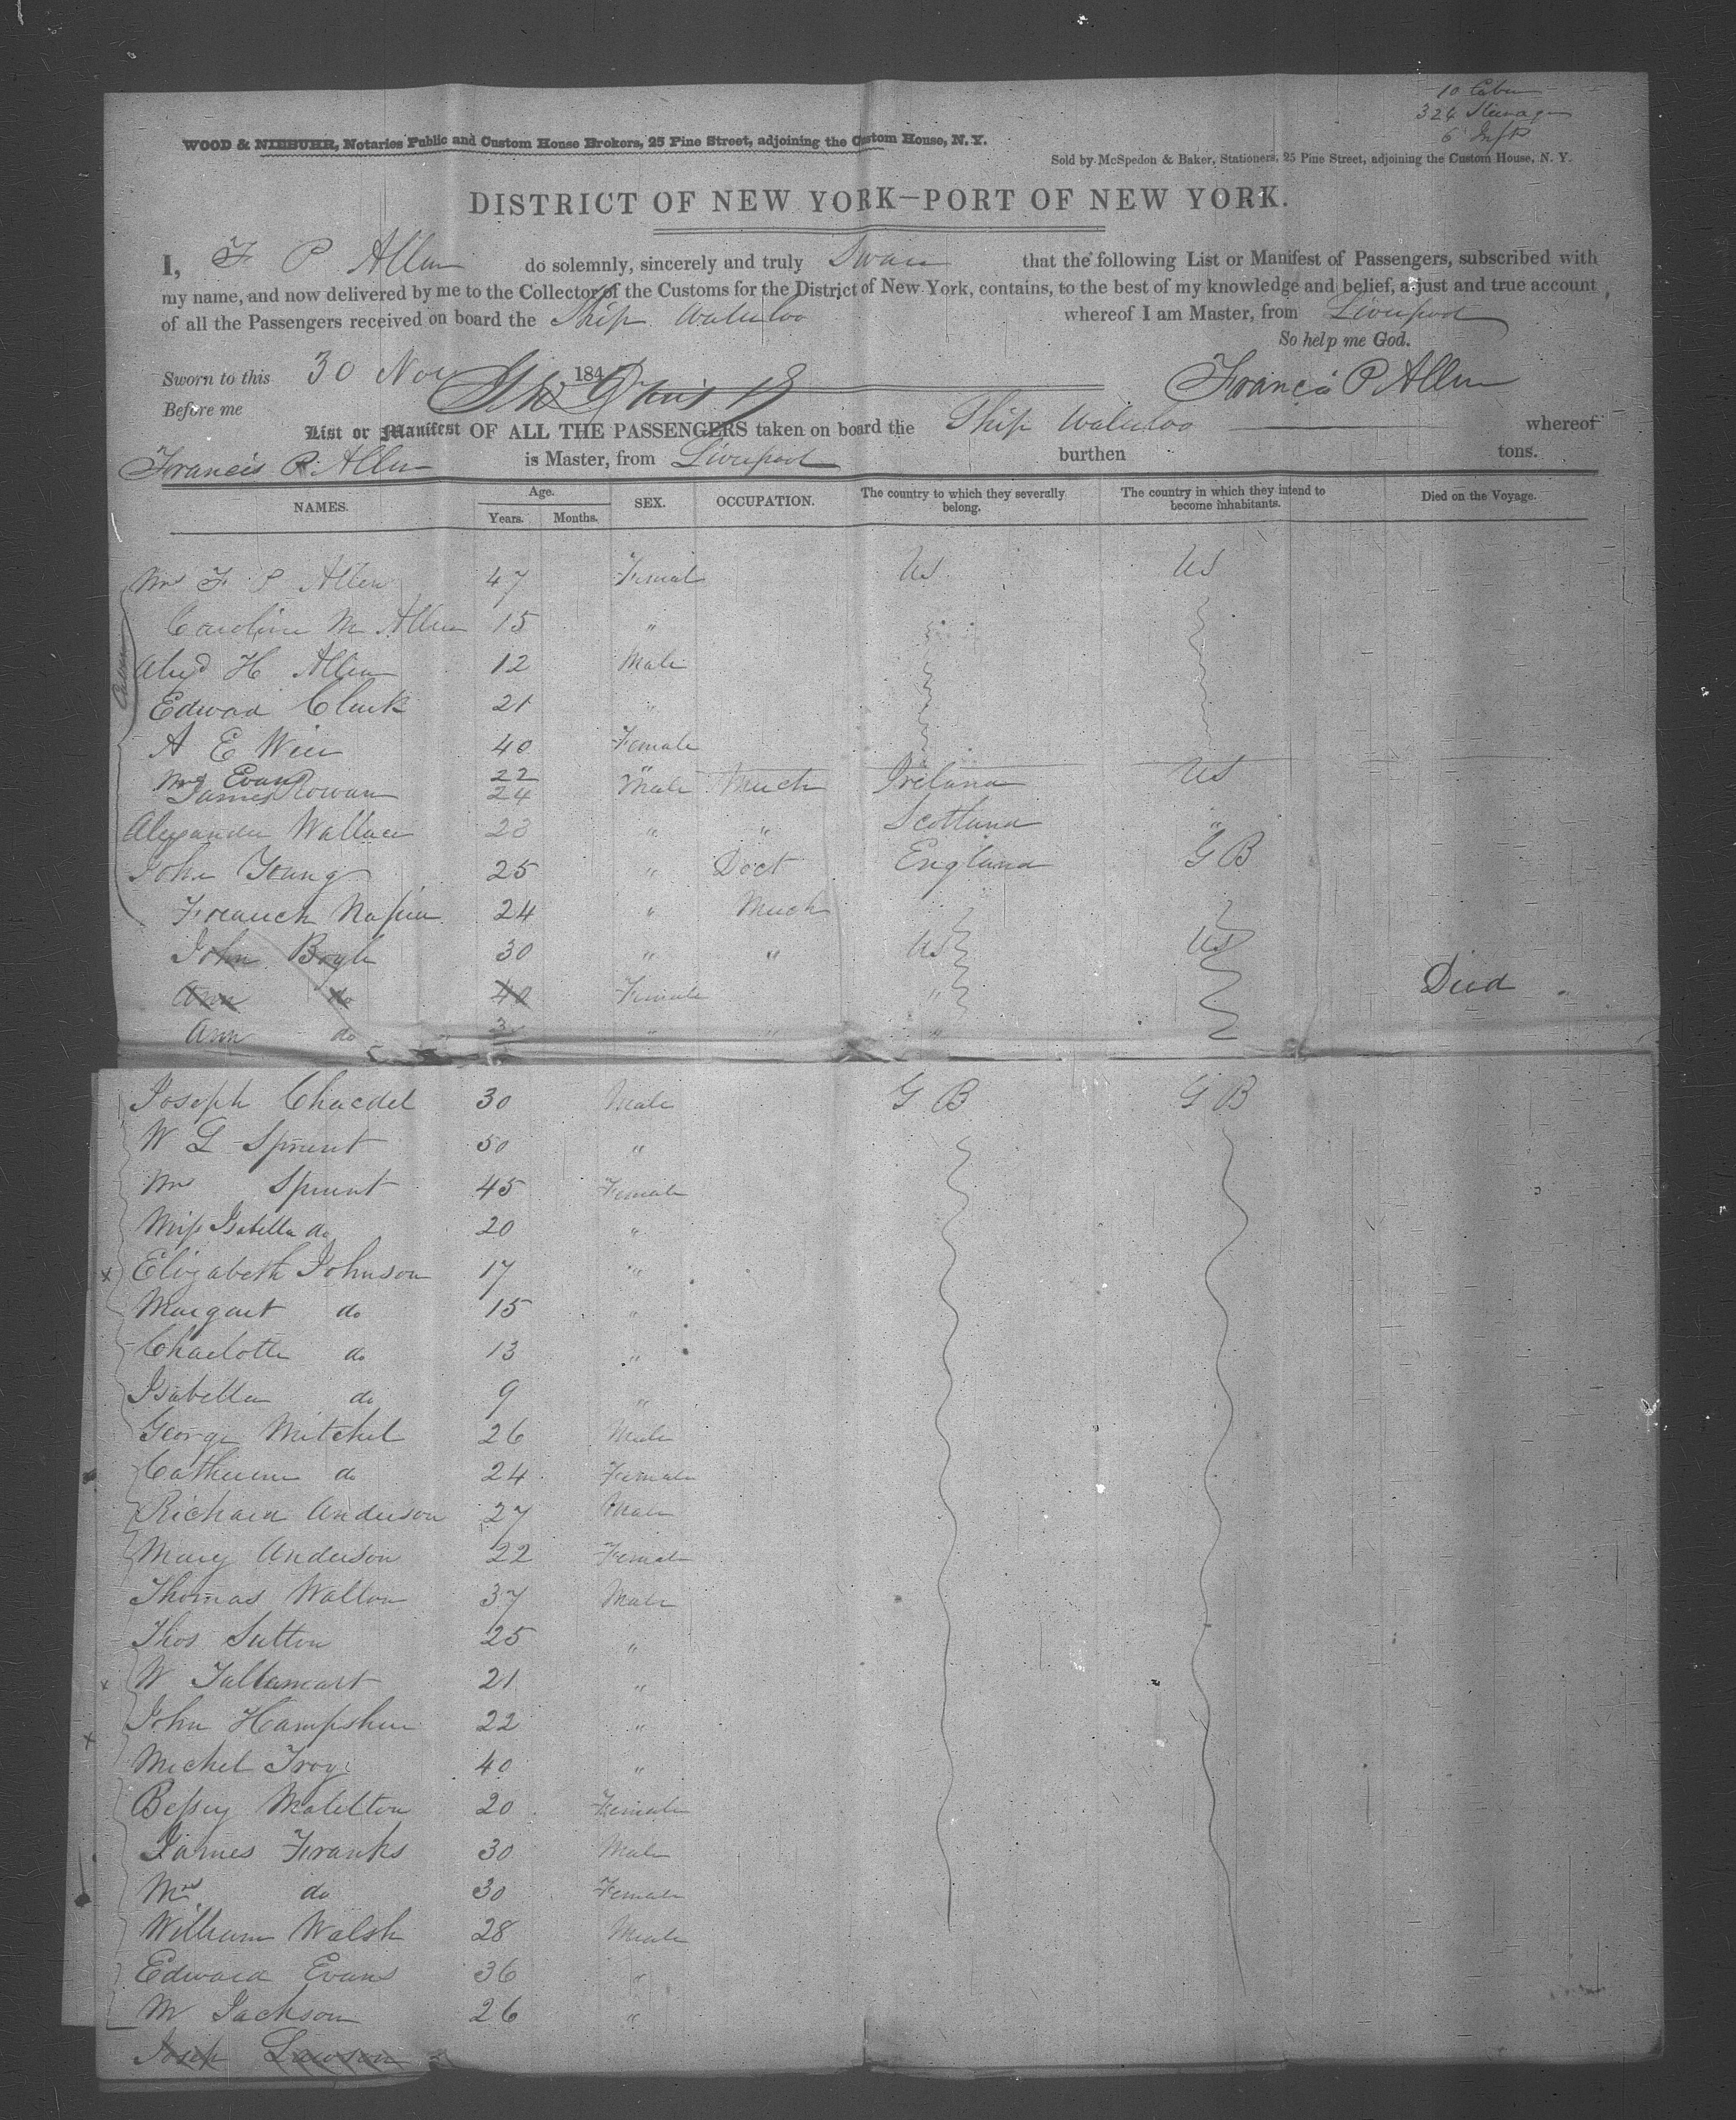 10 Cabin
324 Steerage
6 Infts
WOOD & NIEBUHR, Notaries Public and Custom House Brokers, 25 Pine Street, adjoining the Custom House, N. Y.
Sold by McSpedon & Baker, Stationers, 25 Pine Street, adjoining the Custom House, N. Y.
DISTRICT OF NEW YORK—PORT OF NEW YORK.
I, F P Allen do solemnly, sincerely and truly Swear that the following List or Manifest of Passengers, subscribed with
my name, and now delivered by me to the Collector of the Customs for the District of New York, contains, to the best of my knowledge and belief, a just and true account
of all the Passengers received on board the Ship Waterloo whereof I am Master, from Liverpool
So help me God.
Sworn to this 30 Nov 184 Francis P Allen
Before me
List or Manifest OF ALL THE PASSENGERS taken on board the Ship Waterloo whereof
Francis P. Allen is Master, from Liverpool burthen tons.
NAMES. Age. Years. Months. SEX. OCCUPATION. The country to which they severally belong. The country in which they intend to become inhabitants. Died on the Voyage.
Mrs F P Allen 47 Female US US
Caroline M Allen 15 "
H Allen 12 Male
Edward Clark 21 "
A E 40 Female
Mrs Evans 22 "
James Rowan 24 Male Merch Ireland US
Alexander Wallace 23 " " Scotland "
John Young 25 " Doct England G B
Napier 24 " Merch
John Boyle 30 " " US US
Ann do 40 Female " Died
Ann do 3 " " "
Joseph 30 Male G B G B
W L Sprunt 50 "
Mrs Sprunt 45 Female
Miss Isabella do 20 "
Elizabeth Johnson 17 "
Margart do 15 "
Charlotte do 13 "
Isabella do 9 "
George Mitchel 26 Male
Catherine do 24 Female
Richard Anderson 27 Male
Mary Anderson 22 Female
Thomas Walton 37 Male
Thos Sutton 25 "
W 21 "
John Hampshire 22 "
Michel Troy 40 "
Bessey 20 Female
James Franks 30 Male
Mrs do 30 Female
William Walsh 28 Male
Edward Evans 36 "
M Jackson 26 "
Josep Lawson